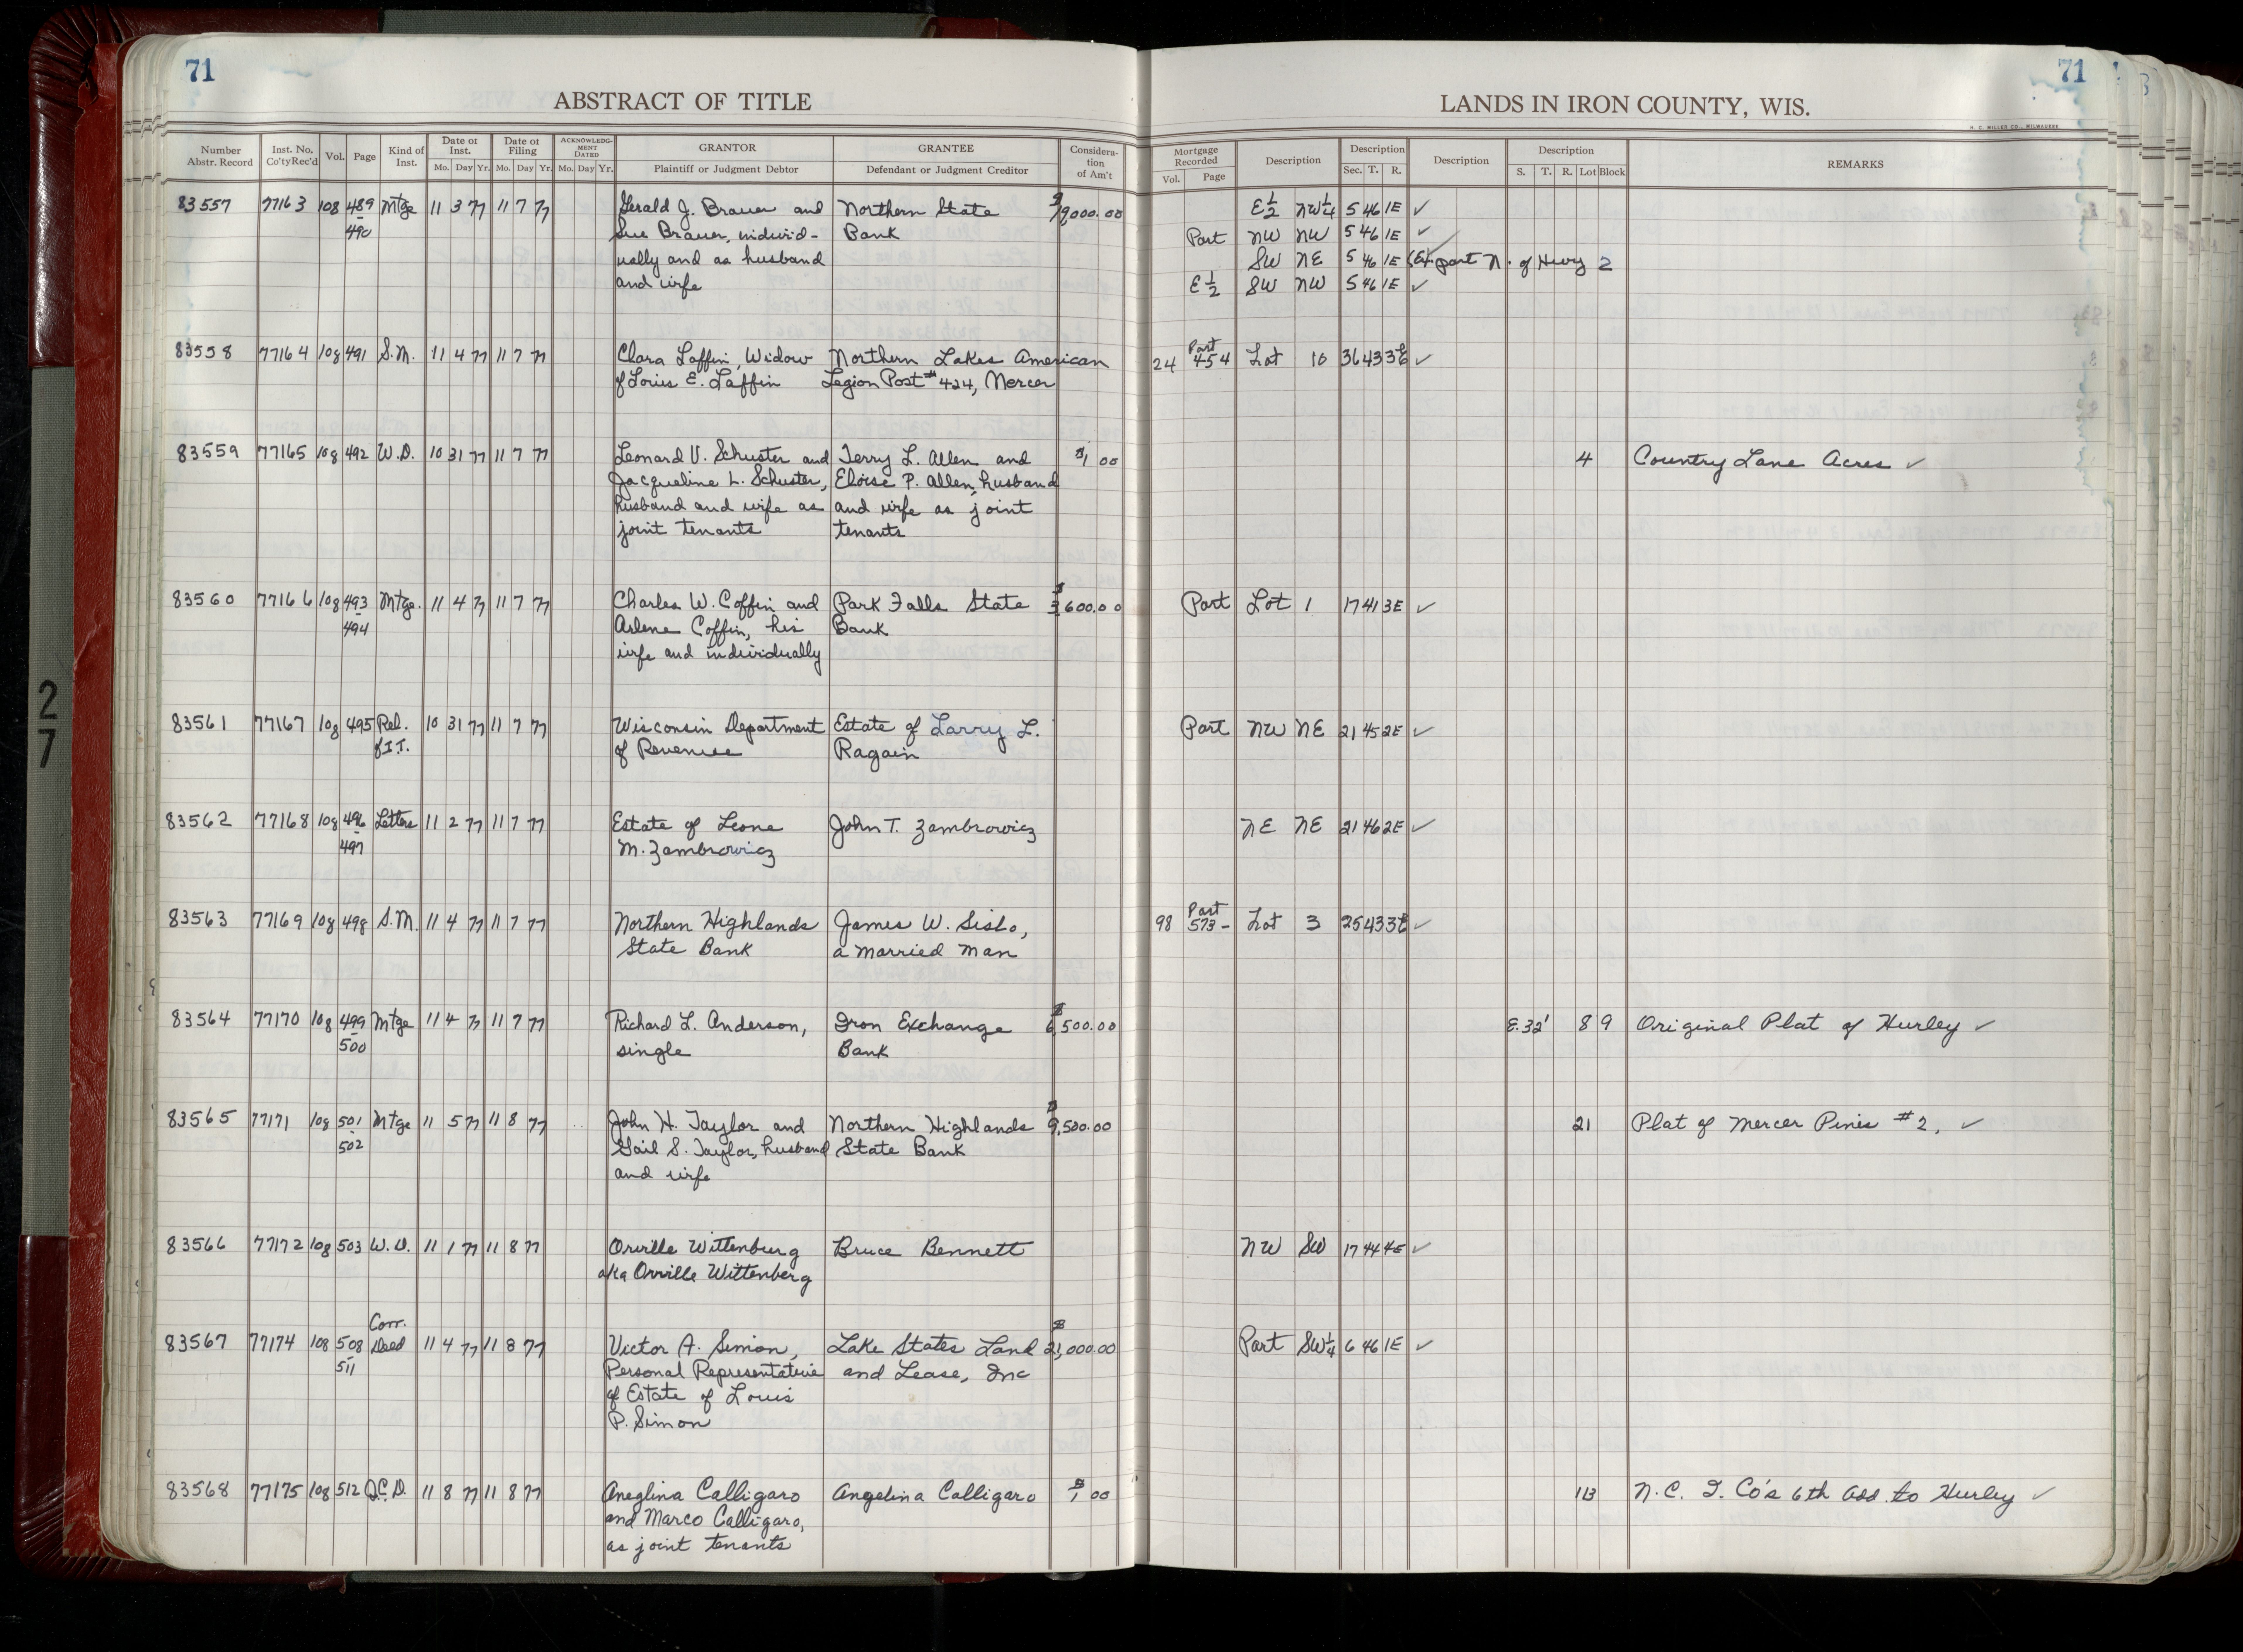 71
71
ABSTRACT OF TITLE
LANDS IN IRON COUNTY, WIS.
H. C. MILLER CO., MILWAUKEE
Number Abstr. Record | Inst. No. Co'tyRec'd | Vol. | Page | Kind of Inst. | Date of Inst. Mo. Day Yr. | Date of Filing Mo. Day Yr. | ACKNOWLEDGMENT DATED Mo. Day Yr. | GRANTOR Plaintiff or Judgment Debtor | GRANTEE Defendant or Judgment Creditor | Consideration of Am't | Mortgage Recorded Vol. Page | Description | Description Sec. T. R. | Description | Description S. T. R. Lot Block | REMARKS
83557 77163 108 489 Mtge 11 3 77 11 7 77 Gerald J. Brauer and Northern State $19,000.00 E½ NW¼ 5 46 1E ✓
490 Sue Brauer, individ- Bank Part NW NW 5 46 1E ✓
ually and as husband SW NE 5 46 1E part N. of Hwy 2
and wife E½ SW NW 5 46 1E ✓
83558 77164 108 491 S.M. 11 4 77 11 7 77 Clara Laffin, Widow Northern Lakes American 24 Part 454 Lot 10 36 43 3E ✓
of Louis E. Laffin Legion Post #424, Mercer
83559 77165 108 492 W.D. 10 31 77 11 7 77 Leonard V. Schuster and Terry L. Allen and $1 00 4 Country Lane Acres ✓
Jacqueline L. Schuster, Eloise P. Allen, husband
husband and wife as and wife as joint
joint tenants tenants
83560 77166 108 493 Mtge. 11 4 77 11 7 77 Charles W. Coffin and Park Falls State $3,600.00 Part Lot 1 17 41 3E ✓
494 Arlene Coffin, his Bank
wife and individually
83561 77167 108 495 Rel. 10 31 77 11 7 77 Wisconsin Department Estate of Larry L. Part NW NE 21 45 2E ✓
of I.T. of Revenue Ragain
83562 77168 108 496 Letters 11 2 77 11 7 77 Estate of Leone John T. Zambrowicz NE NE 21 46 2E ✓
497 M. Zambrowicz
83563 77169 108 498 S.M. 11 4 77 11 7 77 Northern Highlands James W. Sislo, 98 Part 573- Lot 3 25 43 3E ✓
State Bank a married man
83564 77170 108 499 Mtge 11 4 77 11 7 77 Richard L. Anderson, Iron Exchange $6,500.00 E.32' 8 9 Original Plat of Hurley ✓
500 single Bank
83565 77171 108 501 Mtge 11 5 77 11 8 77 John H. Taylor and Northern Highlands $9,500.00 21 Plat of Mercer Pines #2. ✓
502 Gail S. Taylor, husband State Bank
and wife
83566 77172 108 503 W.D. 11 1 77 11 8 77 Orville Wittenburg Bruce Bennett NW SW 17 44 4E ✓
aka Orville Wittenberg
83567 77174 108 508 Corr. Deed 11 4 77 11 8 77 Victor A. Simon, Lake States Land $21,000.00 Part SW¼ 6 46 1E ✓
511 Personal Representative and Lease, Inc
of Estate of Louis
P. Simon
83568 77175 108 512 Q.C.D. 11 8 77 11 8 77 Aneglina Calligaro Angelina Calligaro $1 00 N.C. I. Co's 6th add. to Hurley ✓
and Marco Calligaro,
as joint tenants
27